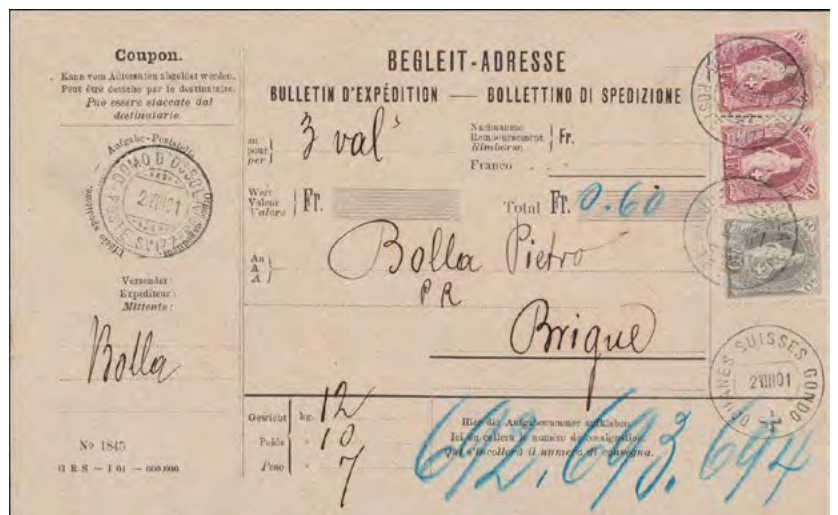 Coupon.
Kann vom Adressaten abgelöst werden.
Peut être détaché par le destinataire.
Può essere staccato dal
destinatario.
Aufgabe-Poststelle
Office expéditeur.
Ufficio speditore.
DOMO D'OSSOLA
2 VIII 01
POSTE SVIZZ
Versender:
Expéditeur:
Mittente:
Bolla
No 1845
G R S — I 01 — 600,000
BEGLEIT-ADRESSE
BULLETIN D'EXPÉDITION — BOLLETTINO DI SPEDIZIONE
zu
pour
per
3 val
Nachnahme
Remboursement
Rimborso
Fr.
Franco
Wert
Valeur
Valore
Fr.
Total Fr. 0.60
An
A
A
Bolla Pietro
P R
Brigue
Gewicht
Poids
Peso
kg. 12
10
7
Hier die Aufgabenummer aufkleben.
Ici on collera le numéro de consignation.
Qui s'incollerà il numero di consegna.
692, 693, 694
DOUANES SUISSES GONDO
2 VIII 01